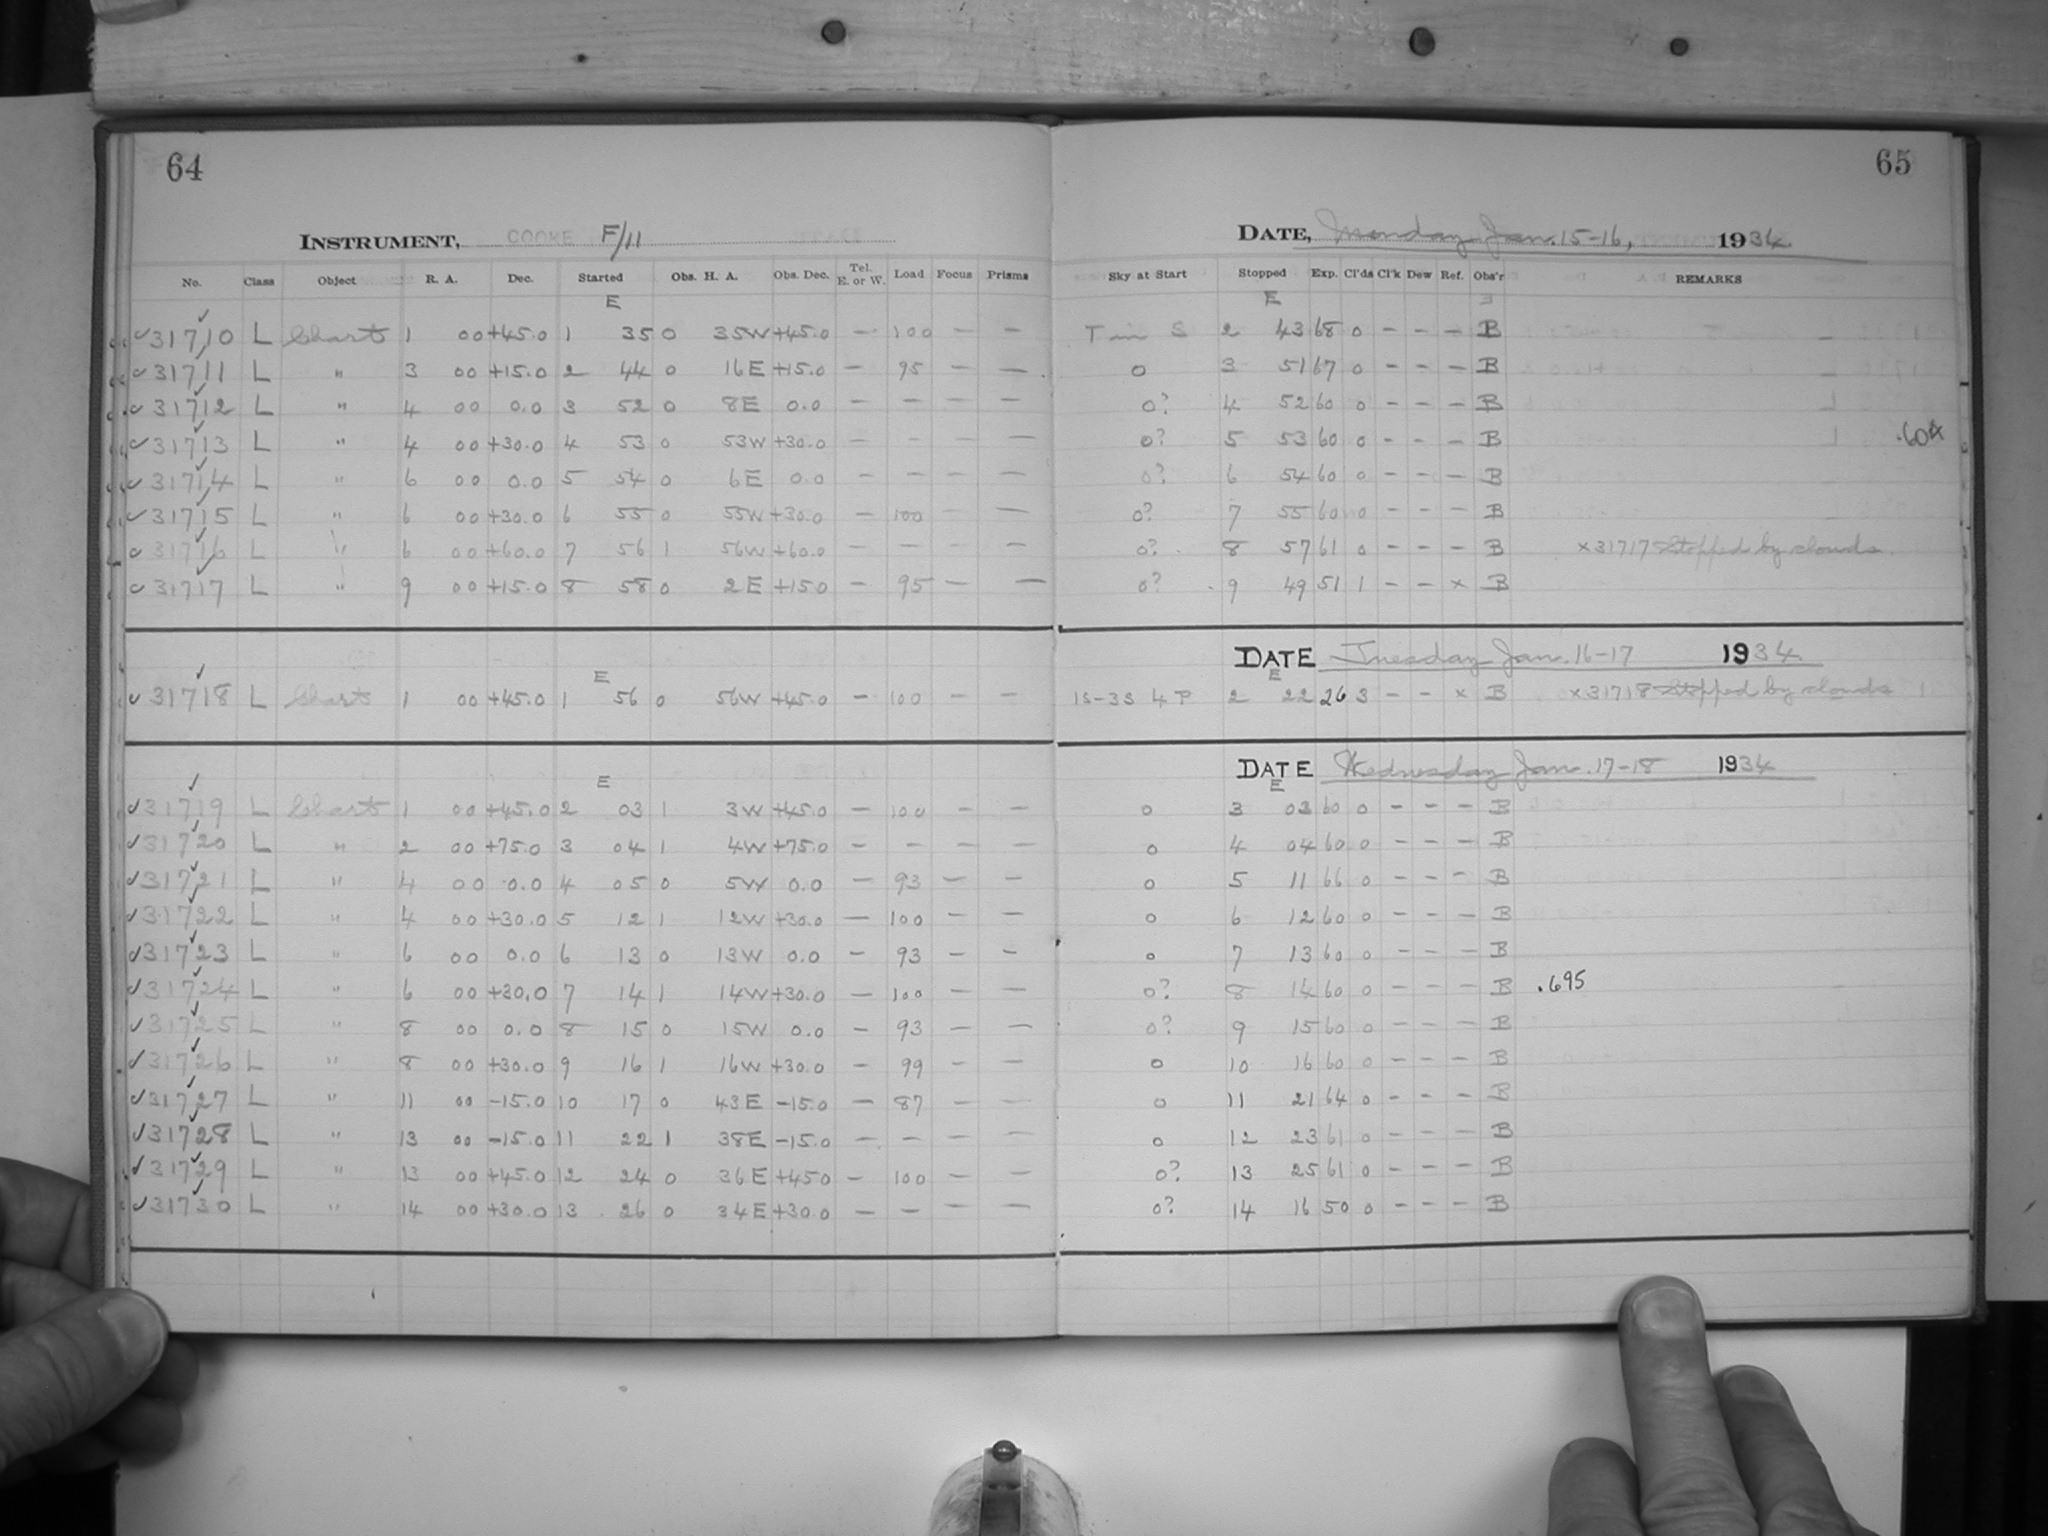 64
65
INSTRUMENT, COOKE F/11
DATE, Monday Jan. 15-16, 1934.
No. Class Object R. A. Dec. Started Obs. H. A. Obs. Dec. Tel. E. or W. Load Focus Prisms Sky at Start Stopped Exp. Cl'ds Cl'k Dew Ref. Obs'r REMARKS
E E
✓31710 L Chart 1 00 +45.0 1 35 0 35W +45.0 — 100 — — T in S 2 43 68 0 - - - B
✓31711 L " 3 00 +15.0 2 44 0 16E +15.0 — 95 — — 0 3 51 67 0 - - - B
✓31712 L " 4 00 0.0 3 52 0 8E 0.0 — — — — 0? 4 52 60 0 - - - B
✓31713 L " 4 00 +30.0 4 53 0 53W +30.0 — — — — 0? 5 53 60 0 - - - B .604
✓31714 L " 6 00 0.0 5 54 0 6E 0.0 — — — — 0? 6 54 60 0 - - - B
✓31715 L " 6 00 +30.0 6 55 0 55W +30.0 — 100 — — 0? 7 55 60 0 - - - B
✓31716 L " 6 00 +60.0 7 56 1 56W +60.0 — — — — 0? 8 57 61 0 - - - B ×31717 Stopped by clouds.
✓31717 L " 9 00 +15.0 8 58 0 2E +15.0 — 95 — — 0? 9 49 51 1 - - × B
DATE Tuesday Jan. 16-17 1934.
E E
✓31718 L Chart 1 00 +45.0 1 56 0 56W +45.0 — 100 — — 1S-3S 4P 2 22 26 3 - - × B ×31718 Stopped by clouds
DATE Wednesday Jan. 17-18 1934
E E
✓31719 L Chart 1 00 +45.0 2 03 1 3W +45.0 — 100 — — 0 3 03 60 0 - - - B
✓31720 L " 2 00 +75.0 3 04 1 4W +75.0 — — — — 0 4 04 60 0 - - - B
✓31721 L " 4 00 0.0 4 05 0 5W 0.0 — 93 — — 0 5 11 66 0 - - - B
✓31722 L " 4 00 +30.0 5 12 1 12W +30.0 — 100 — — 0 6 12 60 0 - - - B
✓31723 L " 6 00 0.0 6 13 0 13W 0.0 — 93 — — 0 7 13 60 0 - - - B
✓31724 L " 6 00 +30.0 7 14 1 14W +30.0 — 100 — — 0? 8 14 60 0 - - - B .695
✓31725 L " 8 00 0.0 8 15 0 15W 0.0 — 93 — — 0? 9 15 60 0 - - - B
✓31726 L " 8 00 +30.0 9 16 1 16W +30.0 — 99 — — 0 10 16 60 0 - - - B
✓31727 L " 11 00 -15.0 10 17 0 43E -15.0 — 87 — — 0 11 21 64 0 - - - B
✓31728 L " 13 00 -15.0 11 22 1 38E -15.0 — — — — 0 12 23 61 0 - - - B
✓31729 L " 13 00 +45.0 12 24 0 36E +45.0 — 100 — — 0? 13 25 61 0 - - - B
✓31730 L " 14 00 +30.0 13 26 0 34E +30.0 — — — — 0? 14 16 50 0 - - - B